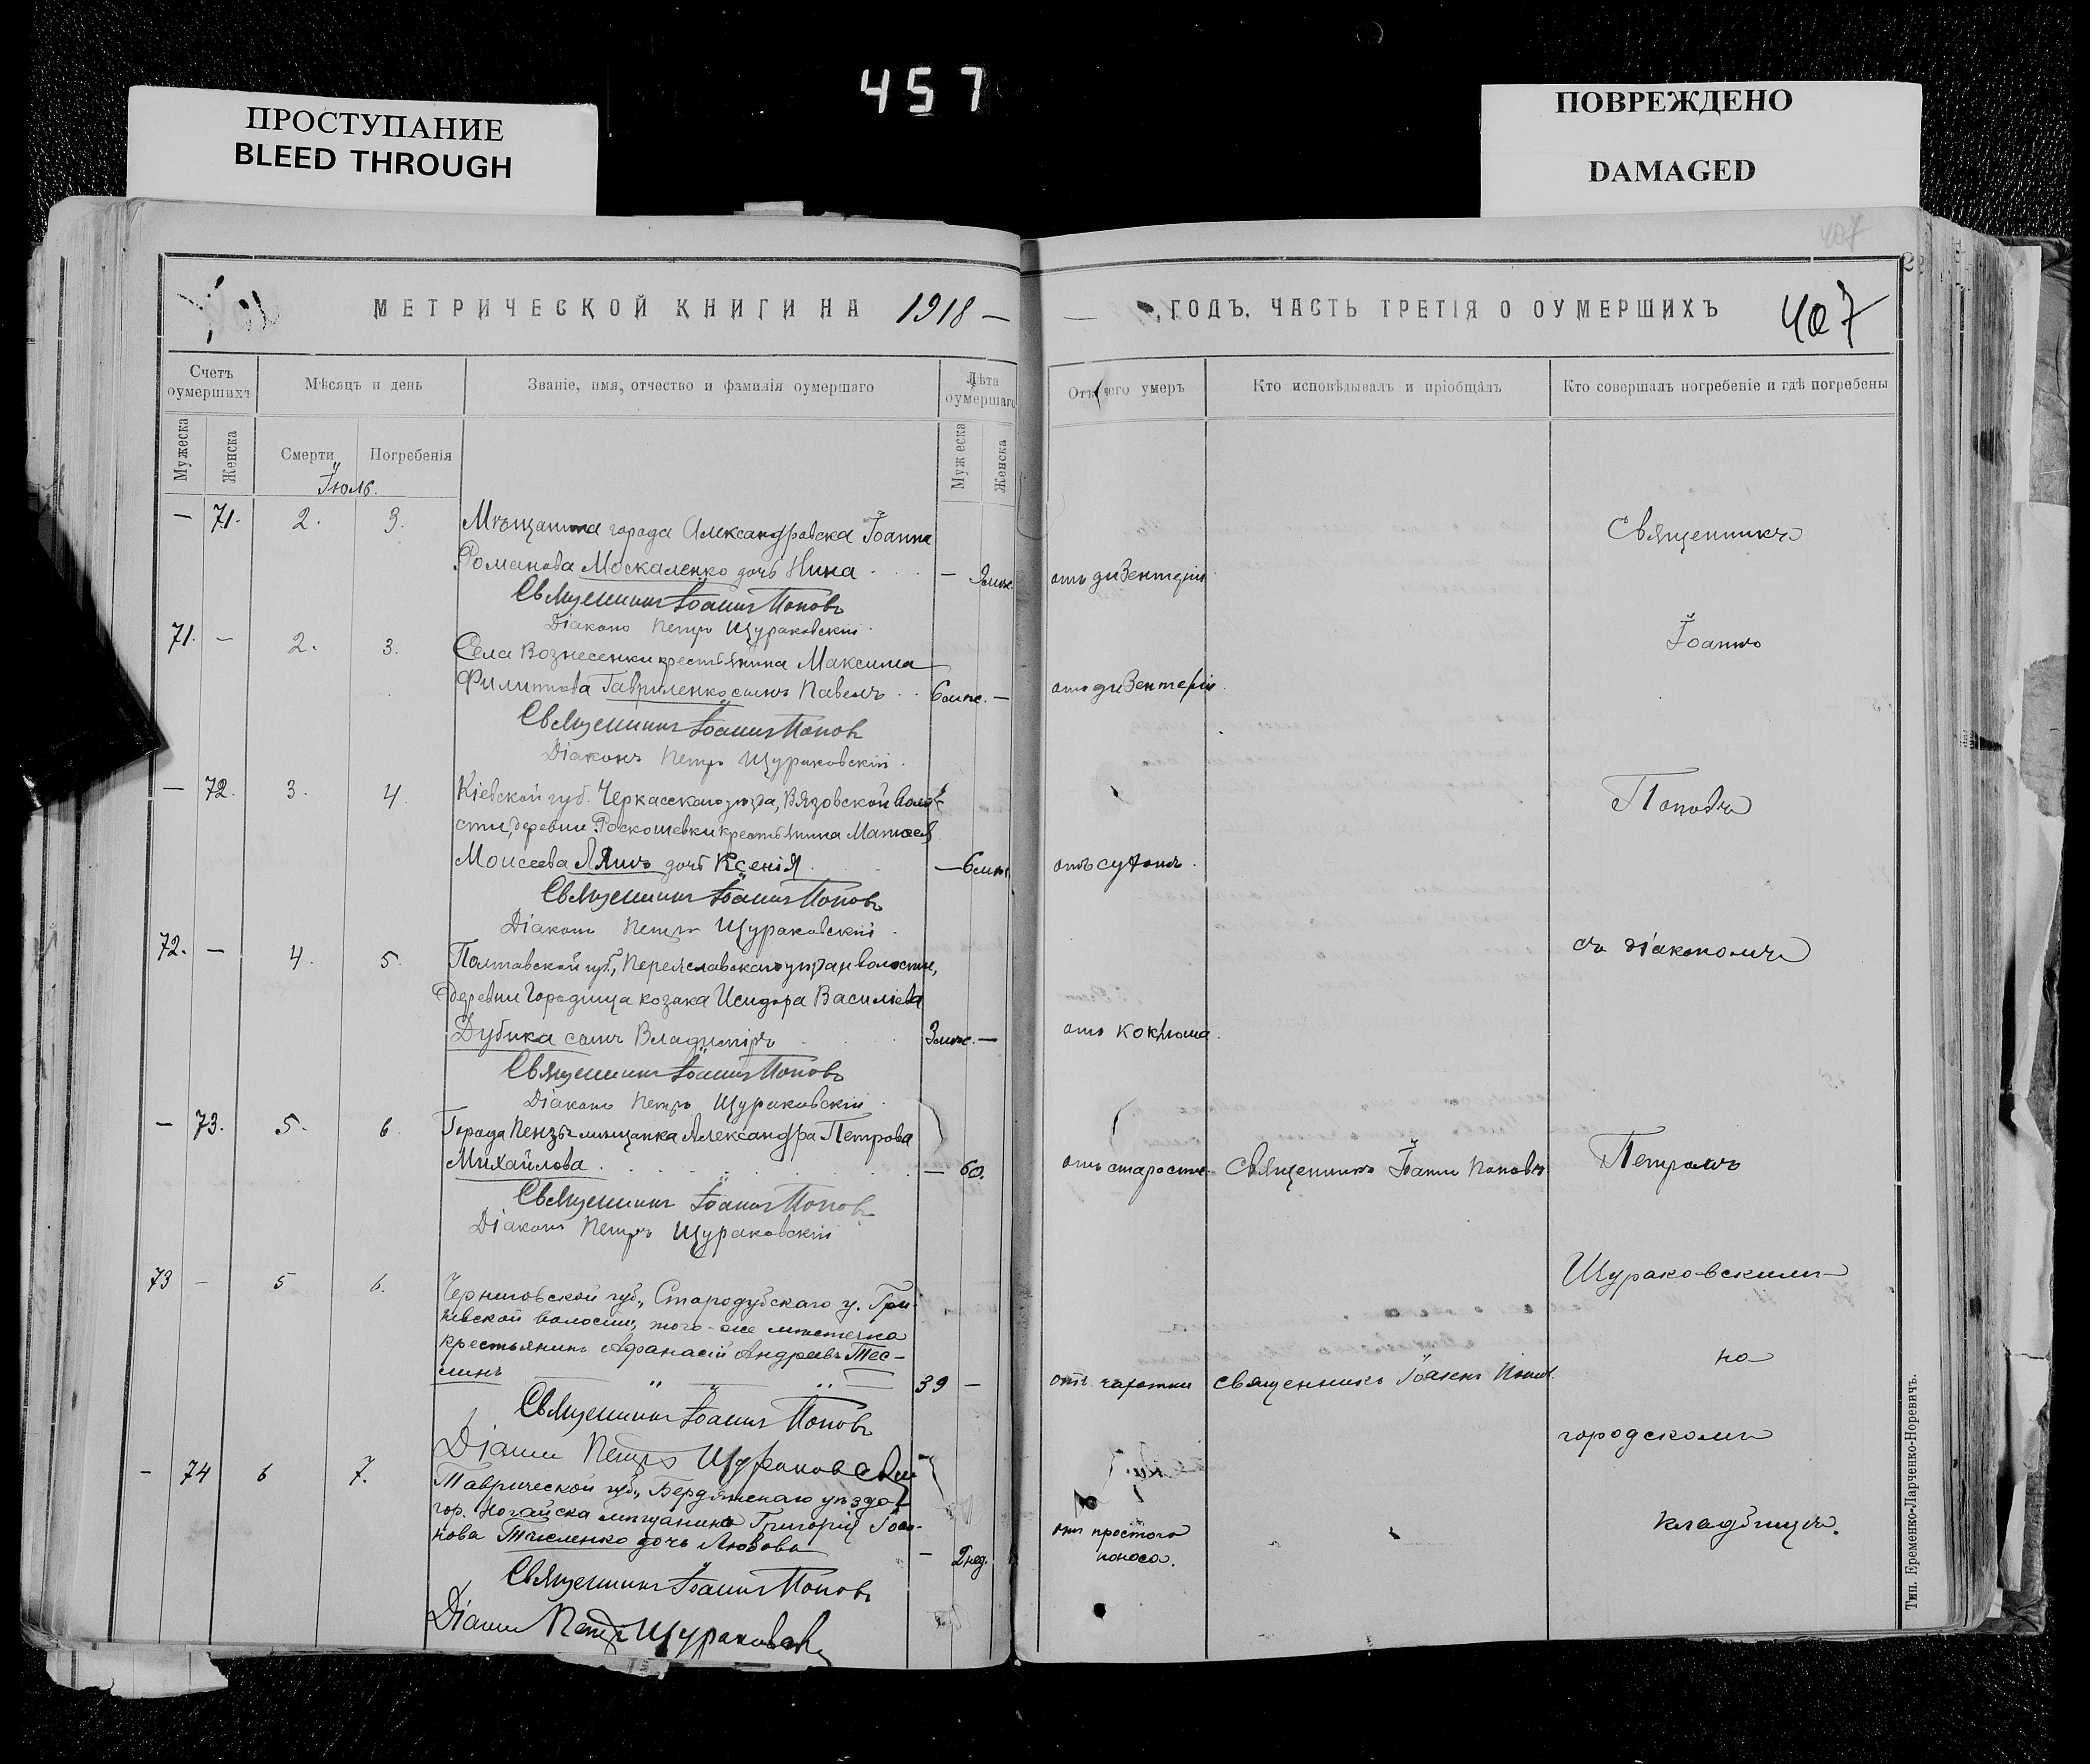 457
ПРОСТУПАНИЕ
BLEED THROUGH
ПОВРЕЖДЕНО
DAMAGED
407
МЕТРИЧЕСКОЙ КНИГИ НА 1918 —
— ГОДЪ, ЧАСТЬ ТРЕТІЯ О ОУМЕРШИХЪ 407
Счетъ оумершихъ
Мѣсяцъ и день
Званіе, имя, отчество и фамилія оумершаго
Лѣта оумершаго
Отъ чего умеръ
Кто исповѣдывалъ и пріобщалъ
Кто совершалъ погребеніе и гдѣ погребены
Мужеска
Женска
Смерти
Погребенія
Муж еска
Женска
Іюль.
— 71. 2. 3. Мѣщанина города Александровска Іоанна
Романова Москаленко дочь Нина — отъ дизентеріи
Священникъ Іоаннъ Поповъ
Діаконъ Петръ Щураковскій.
71. — 2. 3. Села Вознесенки крестьянина Максима
Филиппова Гавриленко сынъ Павелъ 6 мѣс. — отъ дизентеріи.
Священникъ Іоаннъ Поповъ
Діаконъ Петръ Щураковскій.
— 72. 3. 4. Кіевской губ. Черкасскаго уѣзда, Вязовской воло-
сти, деревни Роскошевки крестьянина Матѳея
Моисеева Ляшъ дочь Ксенія. — 6 мѣс. отъ сухотъ.
Священникъ Іоаннъ Поповъ
Діаконъ Петръ Щураковскій.
72. — 4. 5. Полтавской губ., Переяславскаго уѣзда и волости,
деревни Городища козака Исидора Василіева
Дубика сынъ Владиміръ 3 мѣс. — отъ коклюша.
Священникъ Іоаннъ Поповъ
Діаконъ Петръ Щураковскій.
— 73. 5. 6. Города Пензы мѣщанка Александра Петрова
Михайлова. — 60. отъ старости. Священникъ Іоаннъ Поповъ
Священникъ Іоаннъ Поповъ
Діаконъ Петръ Щураковскій
73 — 5 6. Черниговской губ., Стародубскаго у. Гри-
невской волости, того-же мѣстечка
крестьянинъ Афанасій Андреевъ Тес-
линъ 39 — отъ чахотки священникъ Іоаннъ Поповъ.
Священникъ Іоаннъ Поповъ
Діаконъ Петръ Щураковскій
— 74 6 7. Таврической губ., Бердянскаго уѣзда
гор. Ногайска мѣщанина Григорія Іоан-
нова дочь Любовь — 2 нед. отъ простого
поноса.
Священникъ Іоаннъ Поповъ
Діаконъ Петръ Щураковскій
Священникъ
Іоаннъ
Поповъ
съ діакономъ
Петромъ
Щураковскимъ
на
городскомъ
кладбищѣ.
Тип. Еременко-Ларченко-Норевичъ.